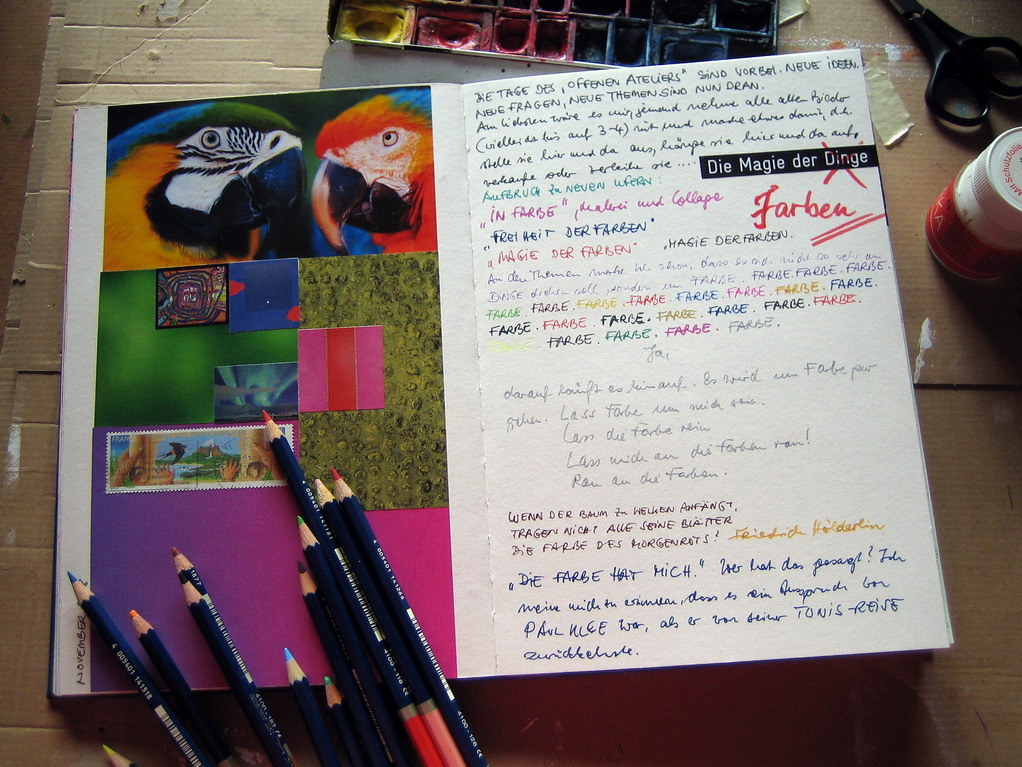 DIE TAGE DES „OFFENEN ATELIERS" SIND VORBEI. NEUE IDEEN,
NEUE FRAGEN, NEUE THEMEN SIND NUN DRAN.
Am liebsten wäre es mir, jemand nehme alle alten Bilder
(vielleicht bis auf 3-4) mit und mache etwas damit, d.h.
stelle sie hier und da aus, hänge sie hier und da auf,
verkaufe oder verleihe sie ....
Die Magie der Dinge
AUFBRUCH ZU NEUEN UFERN:
Farben
„IN FARBE", Malerei und Collage
„FREIHEIT DER FARBEN"
„MAGIE DER FARBEN" MAGIE DER FARBEN.
An den Themen merke ich schon, dass es sich nicht so sehr um
DINGE drehen soll, sondern um FARBE. FARBE. FARBE. FARBE.
FARBE. FARBE. FARBE. FARBE. FARBE. FARBE. FARBE. FARBE.
FARBE. FARBE. FARBE. FARBE. FARBE. FARBE. FARBE.
FARBE. FARBE. FARBE. FARBE.
Ja,
darauf läuft es hinauf. Es wird um Farbe pur
gehen. Lass Farbe um mich sein.
Lass die Farbe rein
Lass mich an die Farben ran!
Ran an die Farben.
WENN DER BAUM ZU WELKEN ANFÄNGT,
TRAGEN NICHT ALLE SEINE BLÄTTER
DIE FARBE DES MORGENROTS? Friedrich Hölderlin
„DIE FARBE HAT MICH." Wer hat das gesagt? Ich
meine mich zu erinnern, dass es ein Ausspruch von
PAUL KLEE war, als er von seiner TUNIS-REISE
zurückkehrte.
NOVEMBER
FRANCE
4 005401 141518
1877